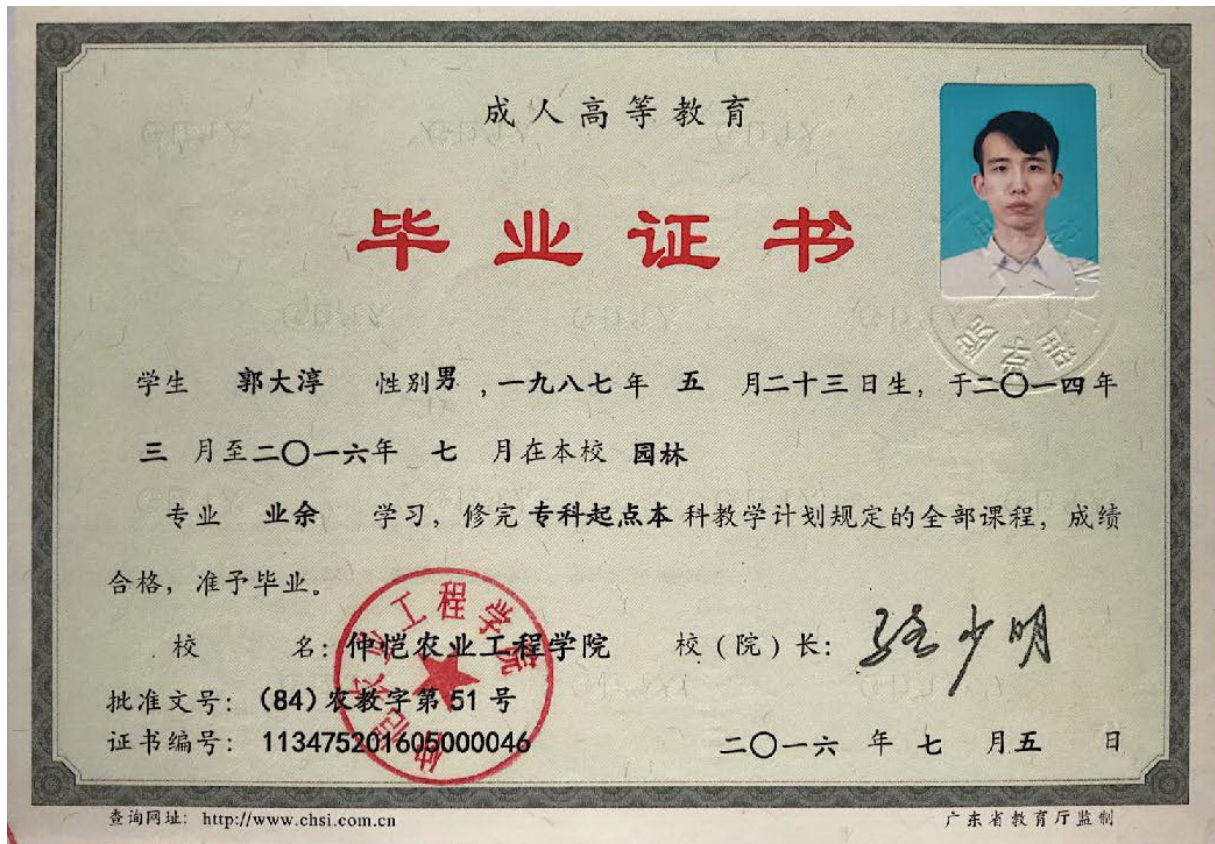 成人高等教育
毕业证书
学生 郭大淳 性别男，一九八七年 五 月二十三日生，于二〇一四年
三 月至二〇一六年 七 月在本校 园林
专业 业余 学习，修完 专科起点本 科教学计划规定的全部课程，成绩
合格，准予毕业。
校 名：仲恺农业工程学院 校（院）长：骆少明
批准文号：（84）农教字第 51 号
证书编号： 113475201605000046 二〇一六 年 七 月五 日
仲恺农业工程学院
查询网址： http://www.chsi.com.cn 广东省教育厅监制